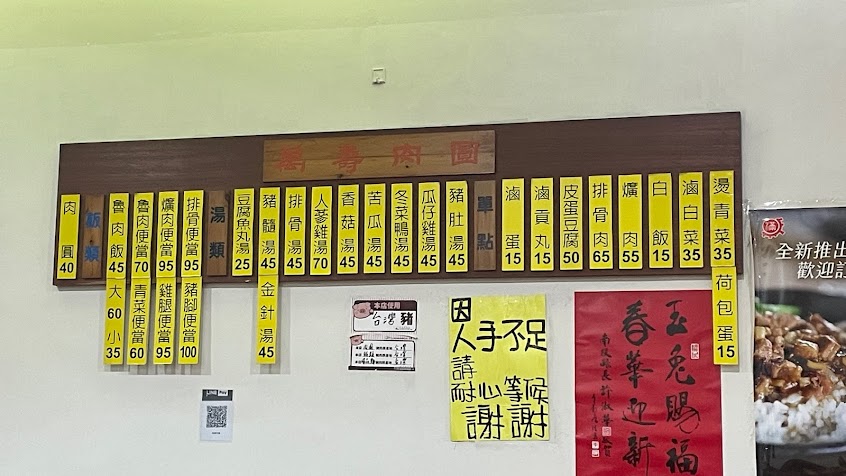 萬壽肉圓
肉圓 40
飯類
魯肉飯 45
大 60
小 35
魯肉便當 70
青菜便當 60
爌肉便當 95
雞腿便當 95
排骨便當 95
豬腳便當 100
湯類
豆腐魚丸湯 25
豬髓湯 45
金針湯 45
排骨湯 45
人蔘雞湯 70
香菇湯 45
苦瓜湯 45
冬菜鴨湯 45
瓜仔雞湯 45
豬肚湯 45
單點
滷蛋 15
滷貢丸 15
皮蛋豆腐 50
排骨肉 65
爌肉 55
白飯 15
滷白菜 35
燙青菜 35
荷包蛋 15
本店使用
台灣豬
因
人手不足
請
耐心等候
謝謝
玉兔賜福
春華迎新
全新推出
歡迎